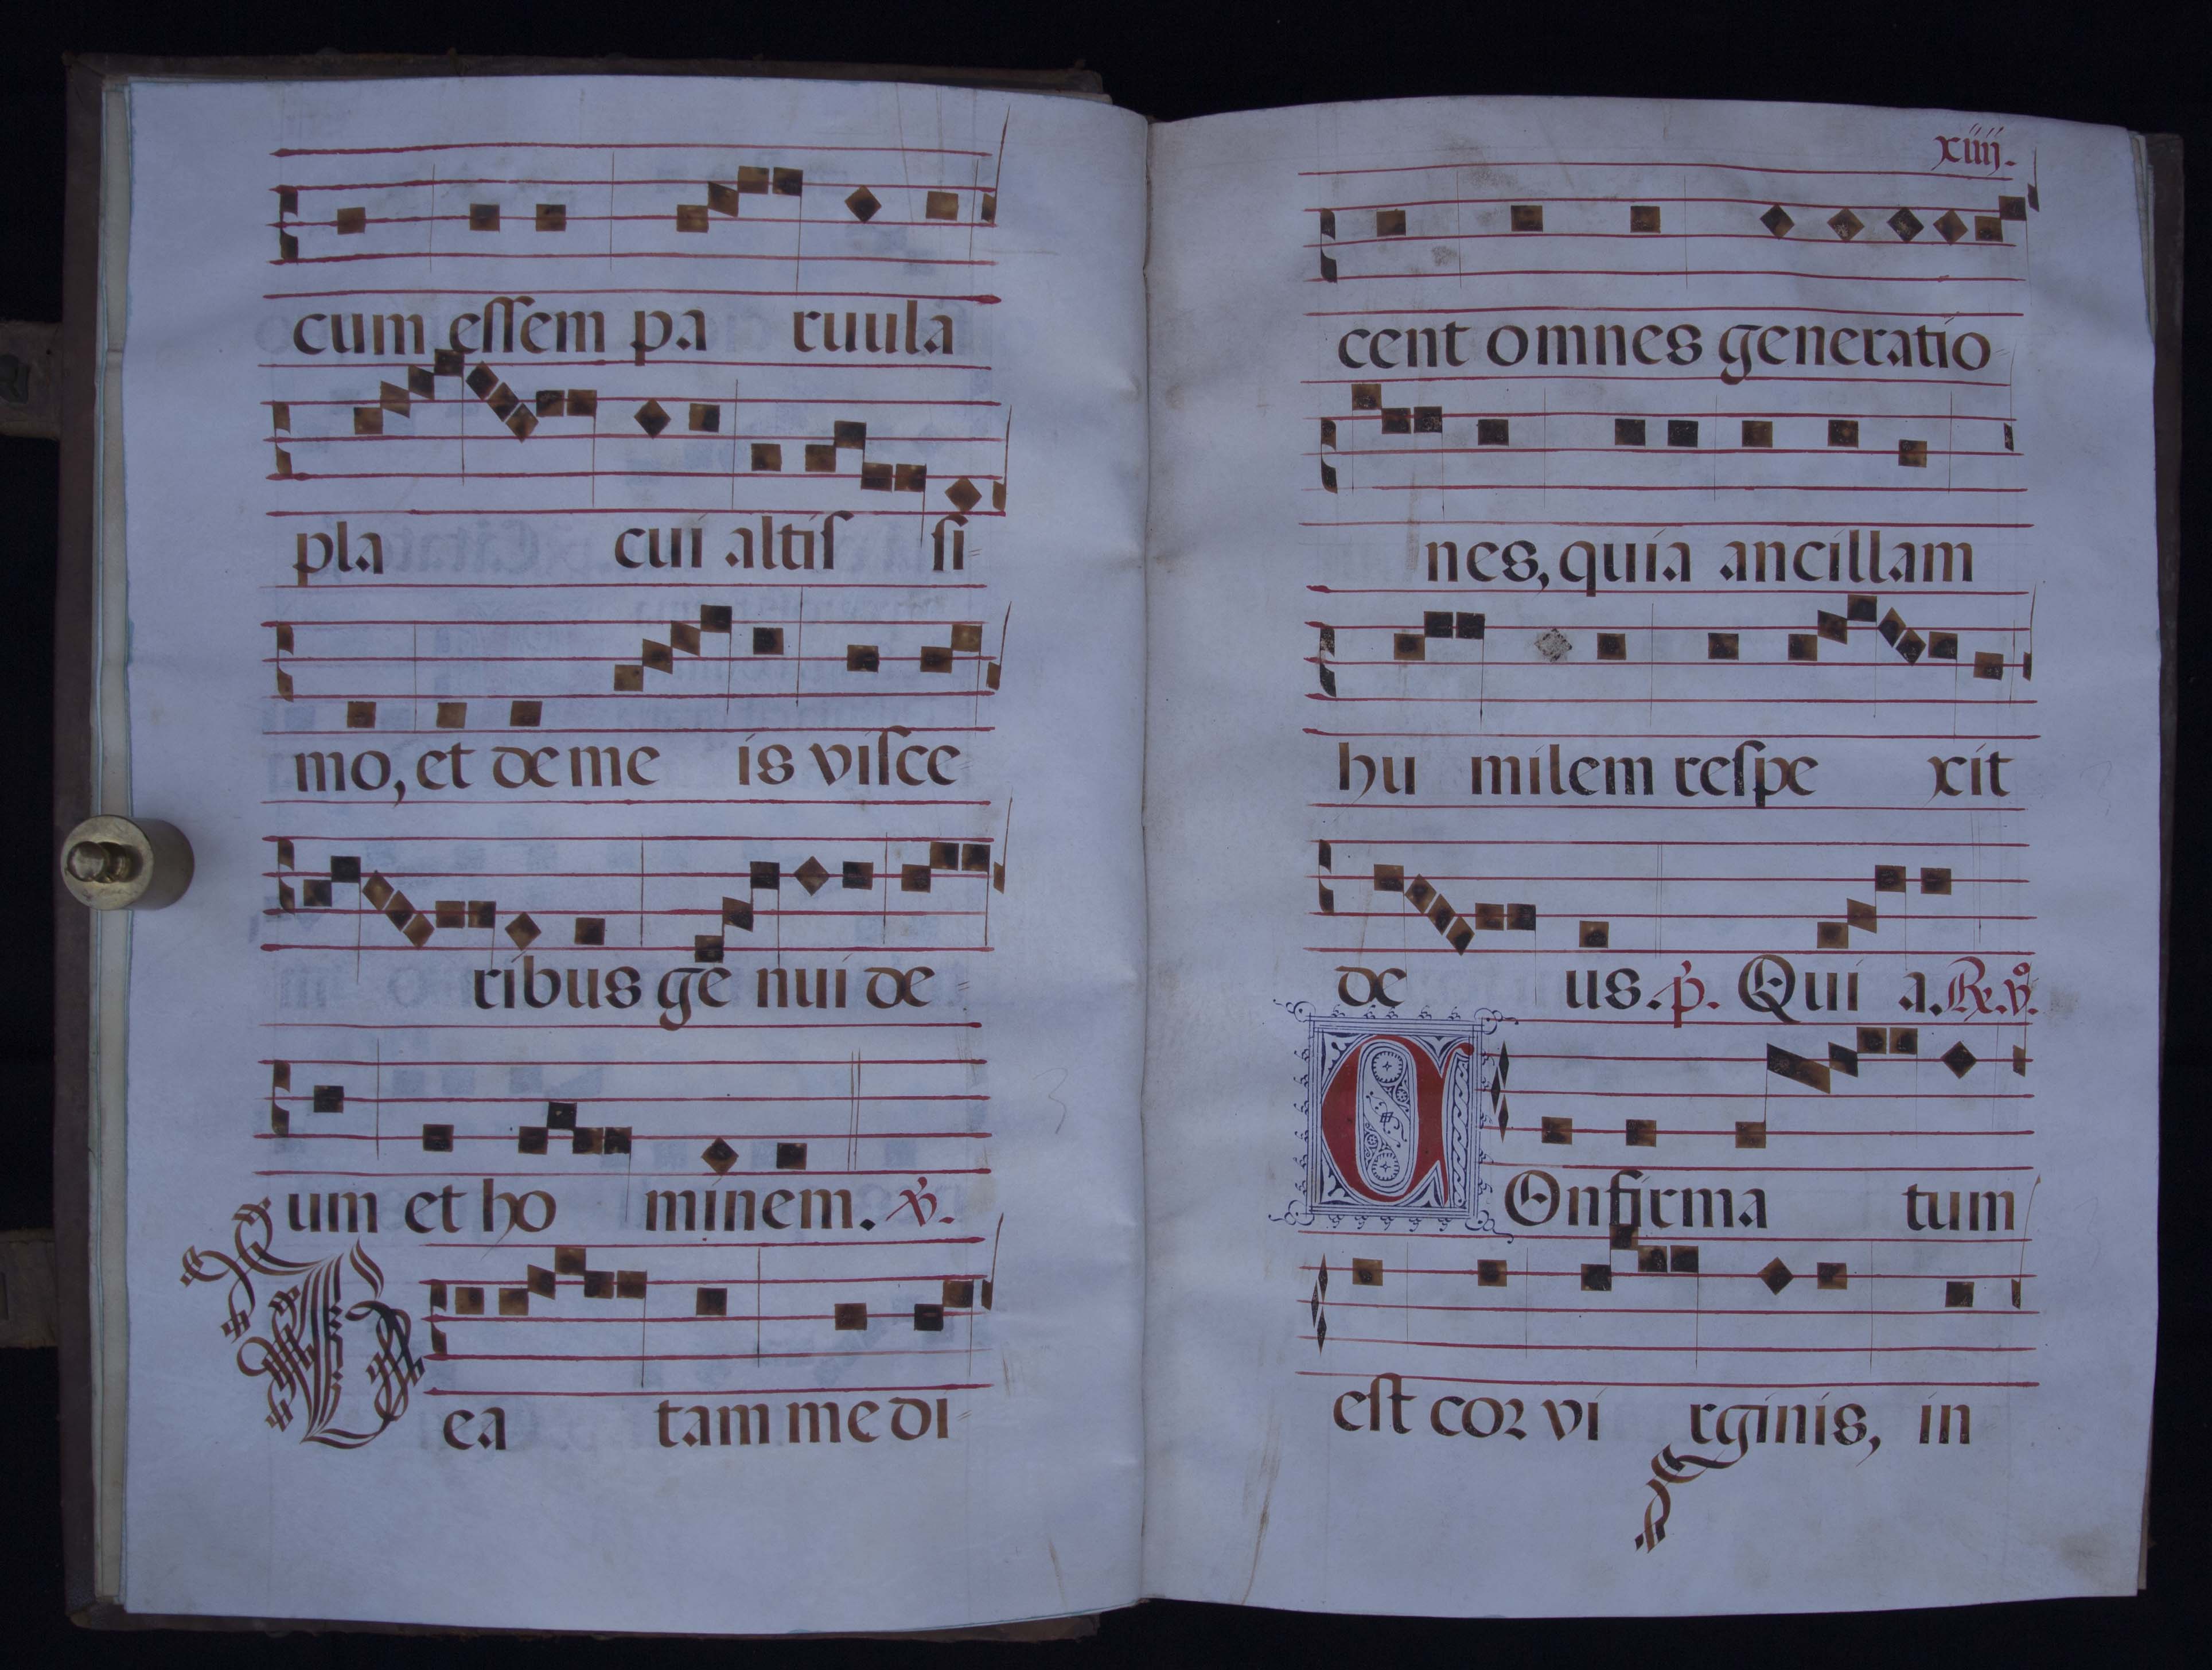 cum essem pa ruula
pla cui altiſ ſi
mo, et de me is viſce
ribus ge nui de
um et ho minem. ℣.
Bea tam me di
xiiij.
cent omnes generatio
nes, quia ancillam
hu milem reſpe xit
de us. p̃. Qui a. ℞. v̊.
COnfirma tum
eſt cor vi rginis, in